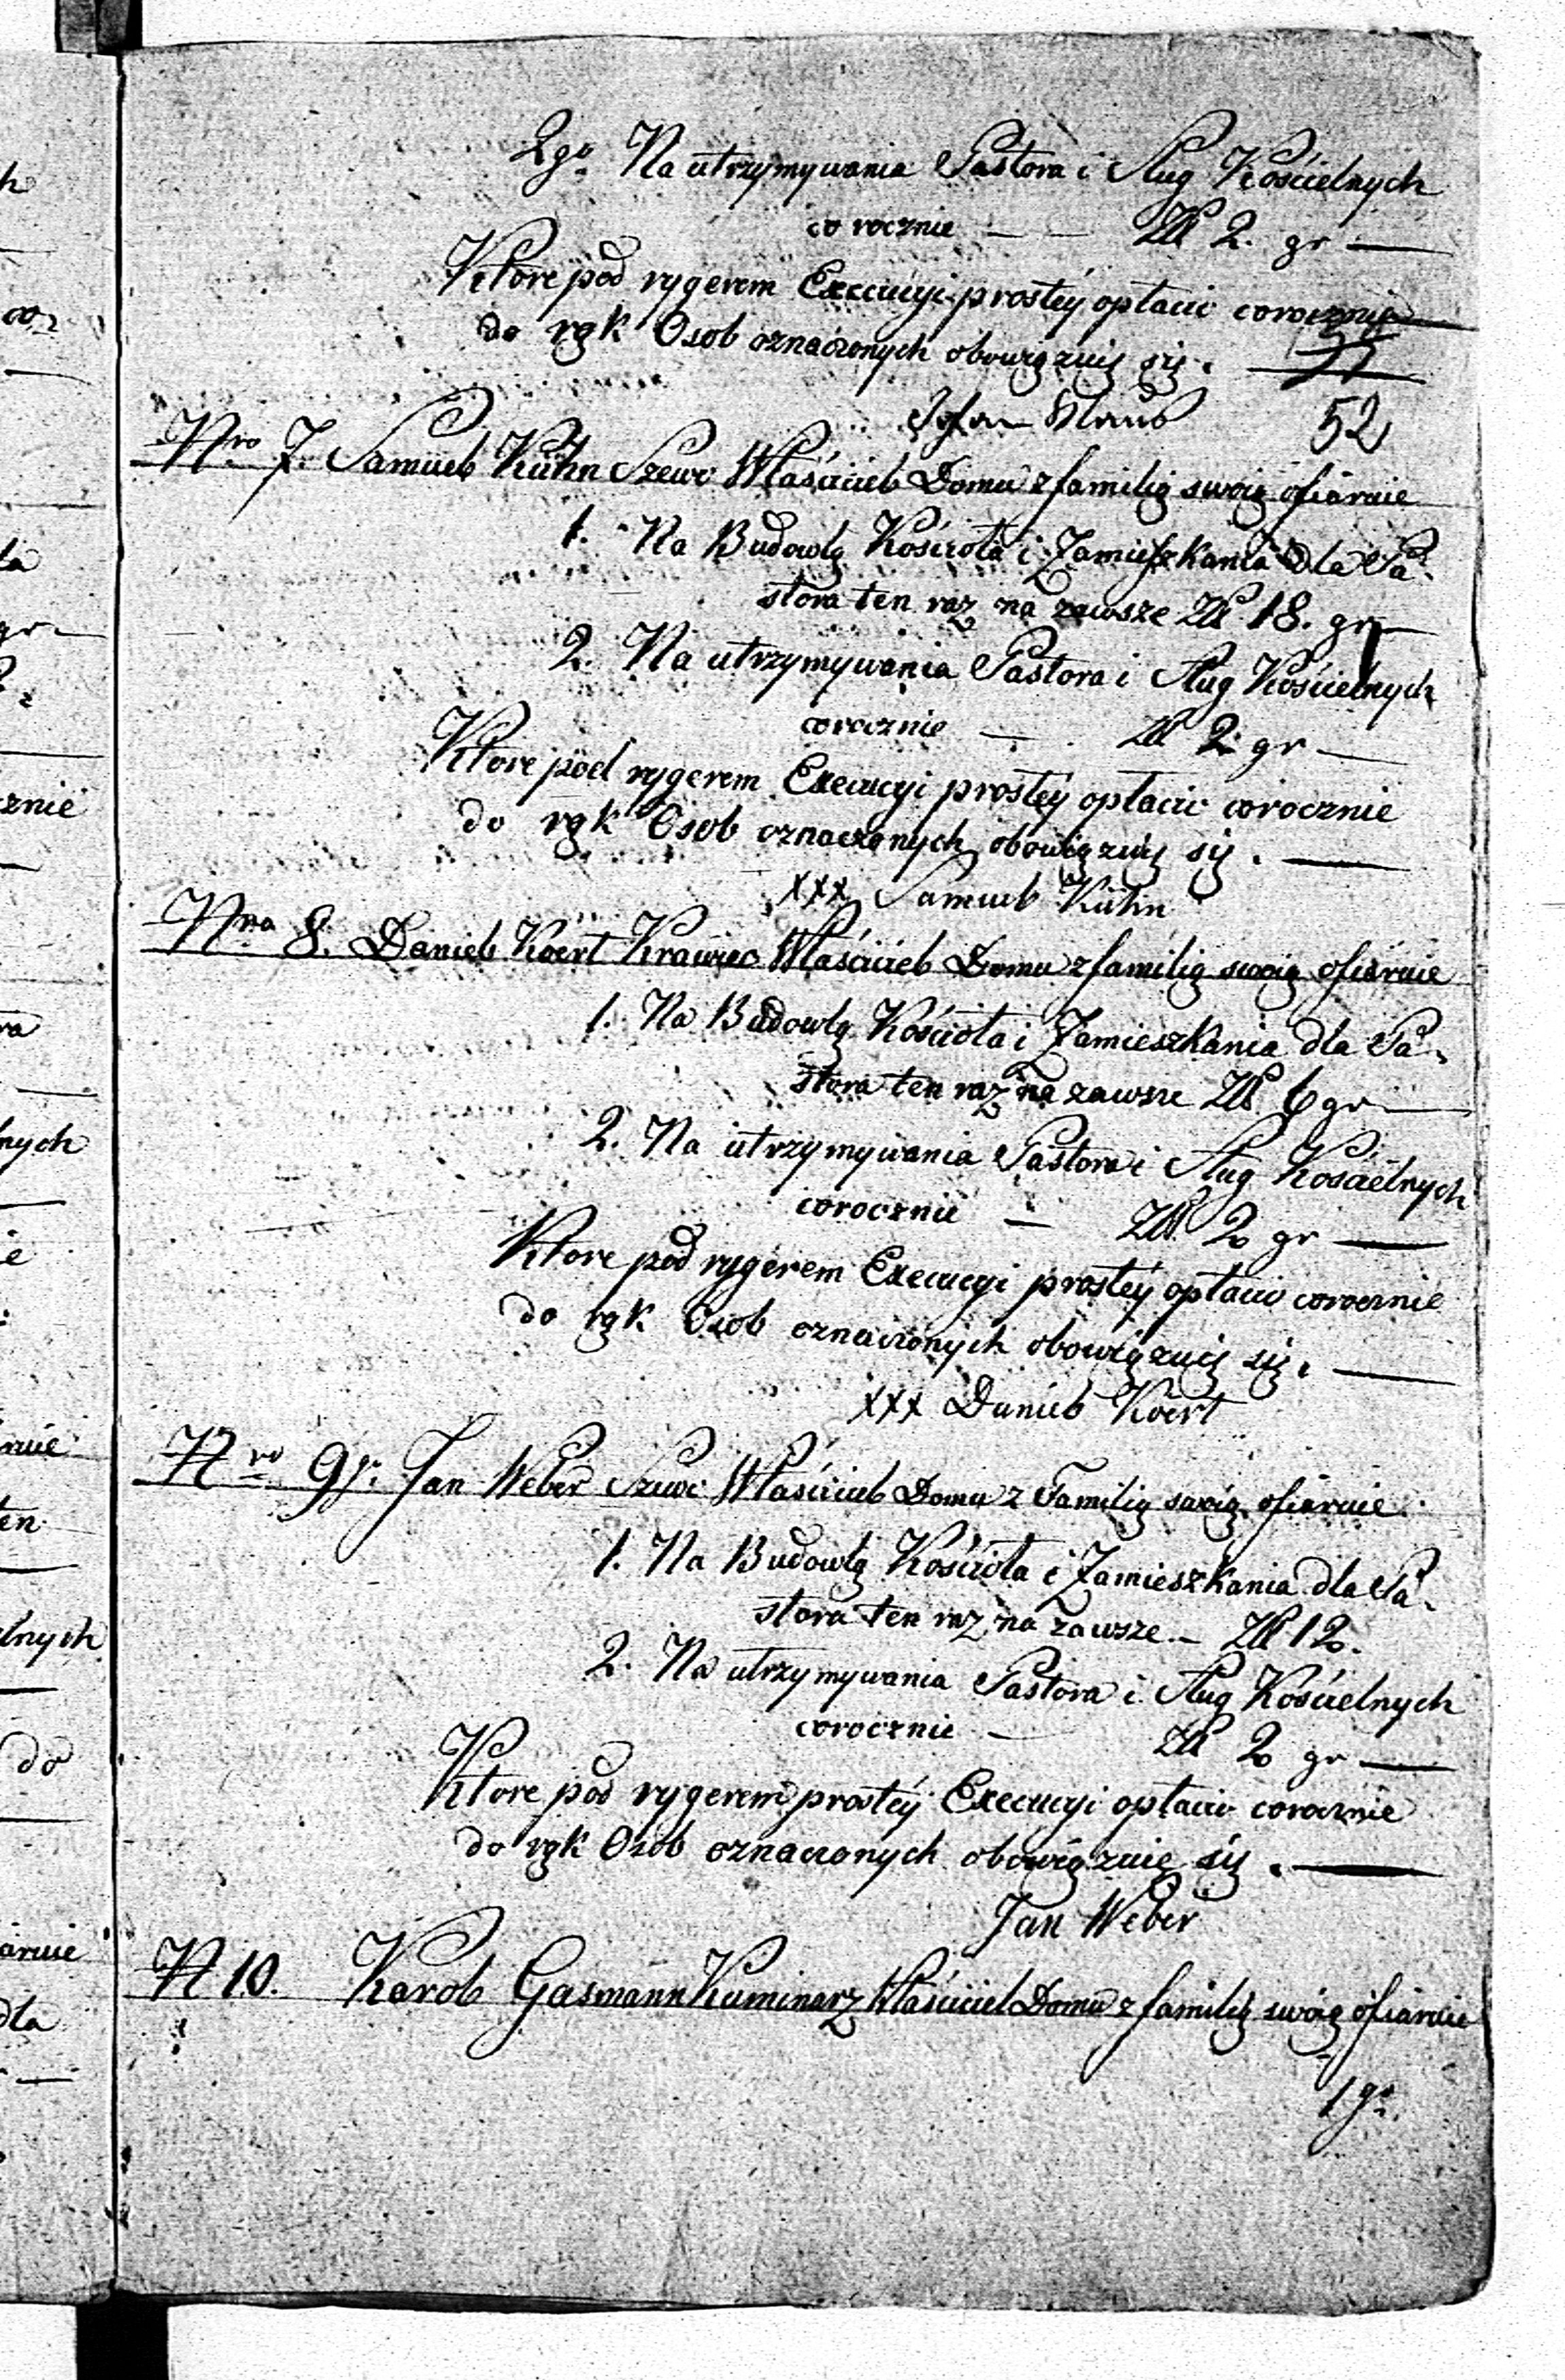 2go. Na utrzymywania Pastora i Sług Kościelnych
co rocznie — — Złł 2. gr —
Ktore pod rygerem Execucyi prostéy opłacic corocznie
do rąk Osob oznaczonych obowięzuię się. —
52
Nro 7. Samuel Kühn Szewc Właściciel Domu z familią swoią ofiaruie
1. Na Budowlą Kościoła i Zamieszkania dla Pa-
stora ten raz na zawsze Złł 18. gr —
2. Na utrzymywania Pastora i Sług Kościelnych
corocznie — Złł 2 gr —
Ktore pod rygerem Execucyi prostęy opłacic corocznie
do rąk Osob oznaczonych obowięzuię się. —
xxx Samuel Kühn
Nro 8. Daniel Koert Krawiec Właściciel Domu z familią swoią ofiaruie
1. Na Budowlą Kościoła i Zamieszkania dla Pa-
stora ten raz na zawsze Złł 6 gr —
2. Na utrzymywania Pastora i Sług Kościelnych
corocznie — Złł 2 gr —
Ktore pod rygerem Execucyi prostéy opłacic corocznie
do rąk Osob oznaczonych obowięzuię się. —
xxx Daniel Koert
Nro 9. Jan Weber Szewc Właściciel Domu z Familią swoią ofiaruie
1. Na Budowlą Kościoła i Zamieszkania dla Pa-
stora ten raz na zawsze — Złł 12.
2. Na utrzymywania Pastora i Sług Kościelnych
corocznie — Złł 2 gr —
Ktore pod rygerem prostéy Execucyi opłacic corocznie
do rąk Osob oznaczonych obowięzuię się. —
Jan Weber
N 10. Karol Gasmann Kuminarz Właściciel Domu z familią swoią ofiaruie
1go.